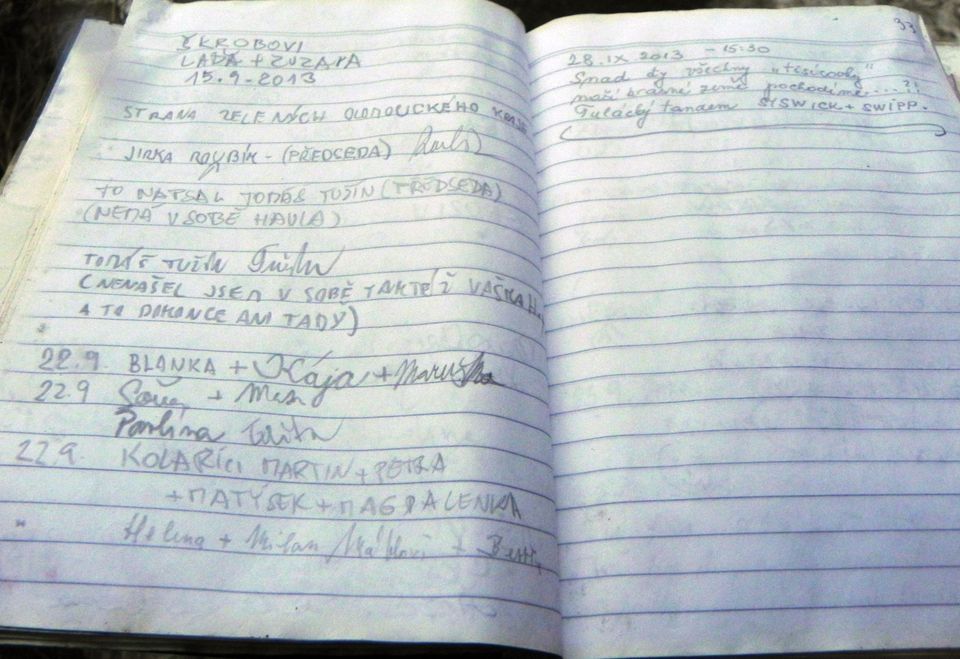 ŠKROBOVI
LÁĎA + ZUZANA
15.9-2013
STRANA ZELENÝCH OLOMOUCKÉHO KRAJE
JIRKA - (PŘEDSEDA)
TO NAPSAL TOMÁŠ TUŽÍN (PŘEDSEDA)
(NEMÁ V SOBĚ HAVLA)
TOMÁŠ TUŽÍN
(NENAŠEL JSEM V SOBĚ TAKTÉŽ VAŠKA
A TO DOKONCE ANI TADY)
22.9. BLANKA + Kája + Maruška
22.9 +
Pavlína
22.9. KOLAŘÍCI MARTIN + PETRA
+ MATÝSEK + MAGDALENKA
" Helena + Milan + Betty
33
28. IX 2013 - 15:30
Snad ty všechny „tisícovky"
naší krásné země pochodíme...?!
Tulácký tandem SISWICK + SWIPP.